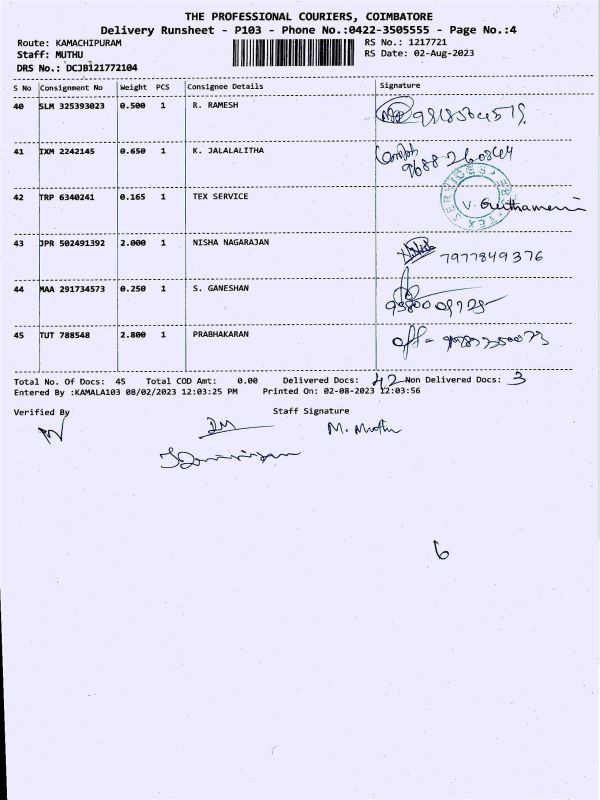 THE PROFESSIONAL COURIERS, COIMBATORE
Delivery Runsheet - P103 - Phone No.:0422-3505555 - Page No.:4
Route: KAMACHIPURAM RS No.: 1217721
Staff: MUTHU RS Date: 02-Aug-2023
DRS No.: DCJB121772104
S No Consignment No Weight PCS Consignee Details Signature
40 SLM 325393023 0.500 1 R. RAMESH
41 IXM 2242145 0.650 1 K. JALALALITHA
9688260844
42 TRP 6340241 0.165 1 TEX SERVICE
43 JPR 502491392 2.000 1 NISHA NAGARAJAN 7977849376
44 MAA 291734573 0.250 1 S. GANESHAN
45 TUT 788548 2.800 1 PRABHAKARAN
Total No. Of Docs: 45 Total COD Amt: 0.00 Delivered Docs: 42 Non Delivered Docs: 3
Entered By :KAMALA103 08/02/2023 12:03:25 PM Printed On: 02-08-2023 12:03:56
Verified By Staff Signature
M. Muthu
6